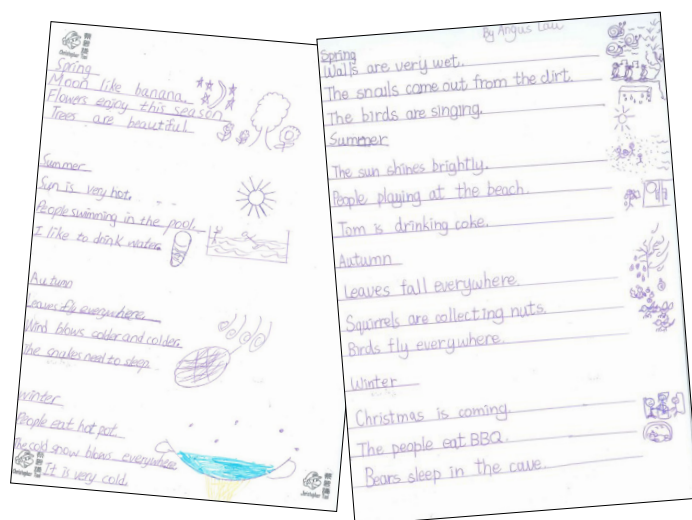 Spring
Moon like banana.
Flowers enjoy this season
Trees are beautiful.
Summer
Sun is very hot.
People swimming in the pool.
I like to drink water.
Autumn
Leaves fly everywhere.
Wind blows colder and colder.
the snakes need to sleep
Winter
People eat hot pot.
The cold snow blows everywhere.
It is very cold.
Christopher
Christopher
By Angus Lau
Spring
Walls are very wet.
The snails come out from the dirt.
The birds are singing.
Summer
The sun shines brightly.
People playing at the beach.
Tom is drinking coke.
Autumn
Leaves fall everywhere.
Squirrels are collecting nuts.
Birds fly everywhere.
Winter
Christmas is coming.
The people eat BBQ.
Bears sleep in the cave.